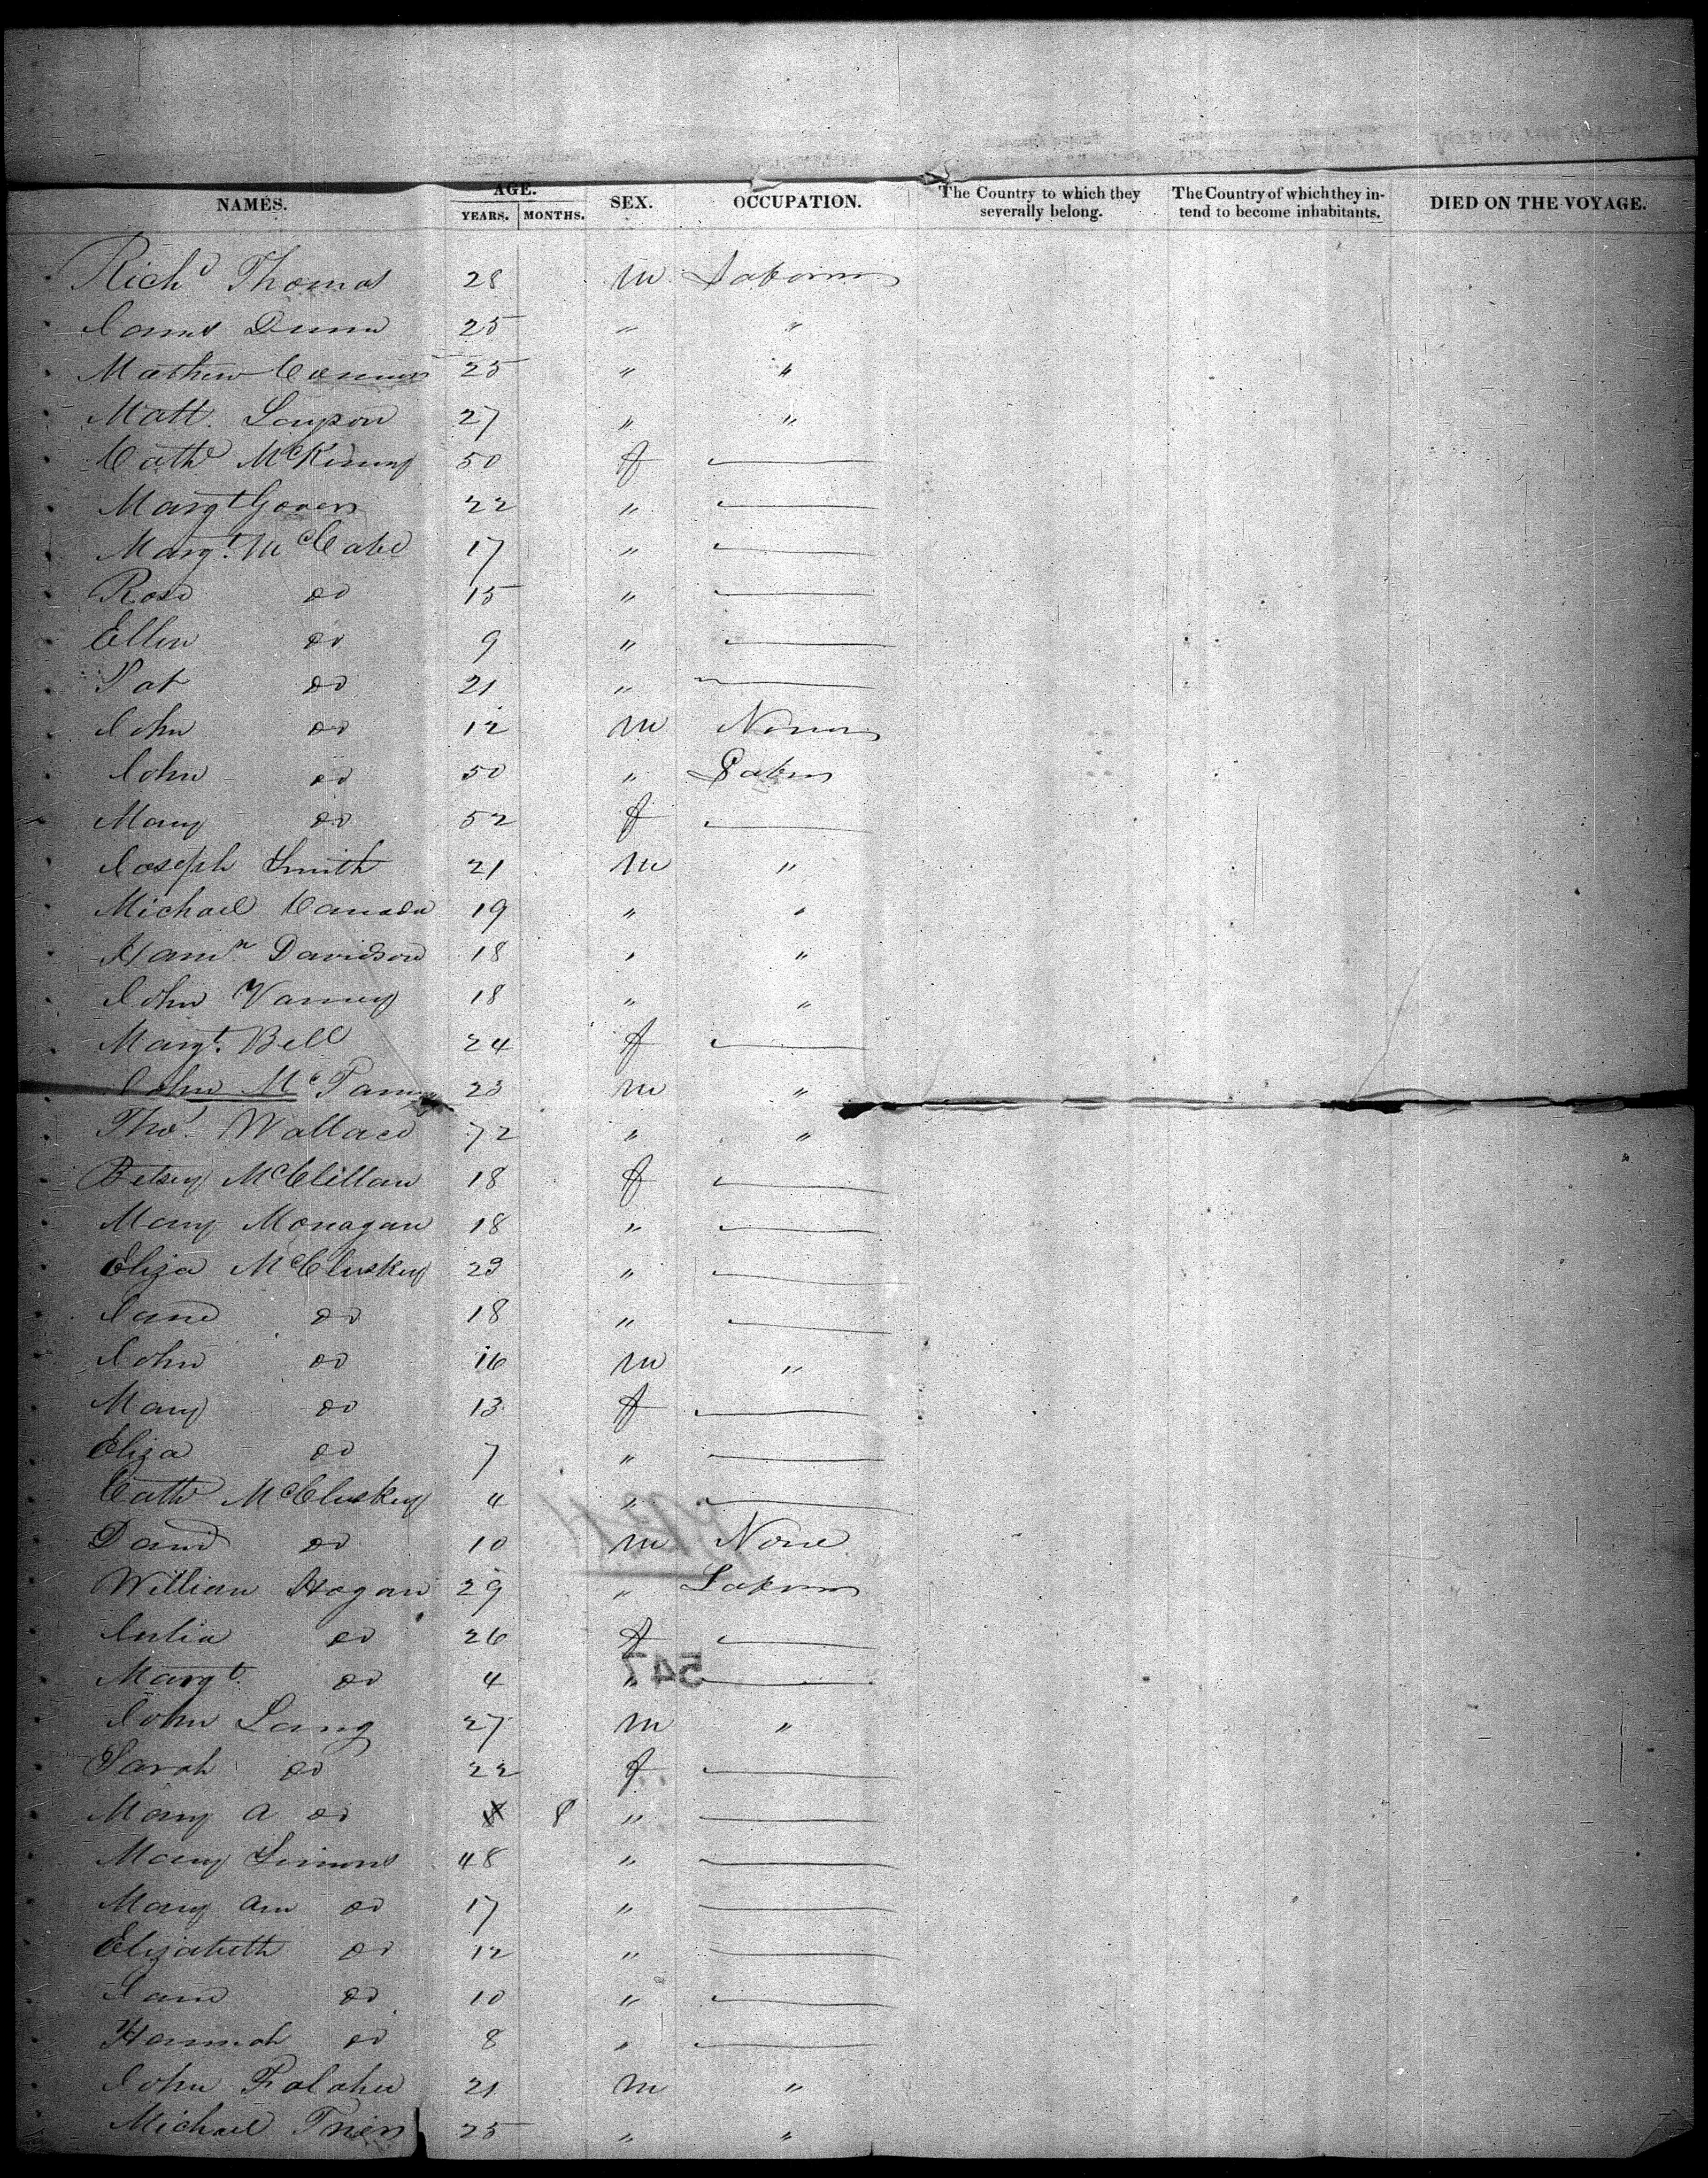 NAMES. AGE. YEARS. MONTHS. SEX. OCCUPATION. The Country to which they severally belong. The Country of which they intend to become inhabitants. DIED ON THE VOYAGE.
Richd Thomas 28 m Laborer
James Dunn 25 " "
Mathew Connor 25 " "
Matt. 27 " "
Cath McKinney 50 f —
Margt Govern 22 " —
Margt. McCabe 17 " —
Rose do 15 " —
Ellen do 9 " —
Pat do 21 " —
John do 12 m None
John do 50 " Labr
Mary do 52 f —
Joseph Smith 21 m "
Michael Canada 19 " "
Hamn Davidson 18 " "
John Varney 18 " "
Margt. Bell 24 f —
John Mc 23 m "
Thos. Wallace 72 " "
Betsey McClellan 18 f —
Mary Monagan 18 " —
Eliza McCluskey 23 " —
Jane do 18 " —
John do 16 m "
Mary do 13 f —
Eliza do 7 " —
Cath McCluskey 4 " —
David do 10 m None
William Hogan 29 " Laborer
Julia do 26 f —
Margt. do 4 " —
547
John Lang 27 m "
Sarah do 22 f —
Mary A do 8 " —
Mary Simons 48 " —
Mary Ann do 17 " —
Elizabeth do 12 " —
Jane do 10 " —
Hannah do 8 " —
John 21 m "
Michael 25 " "